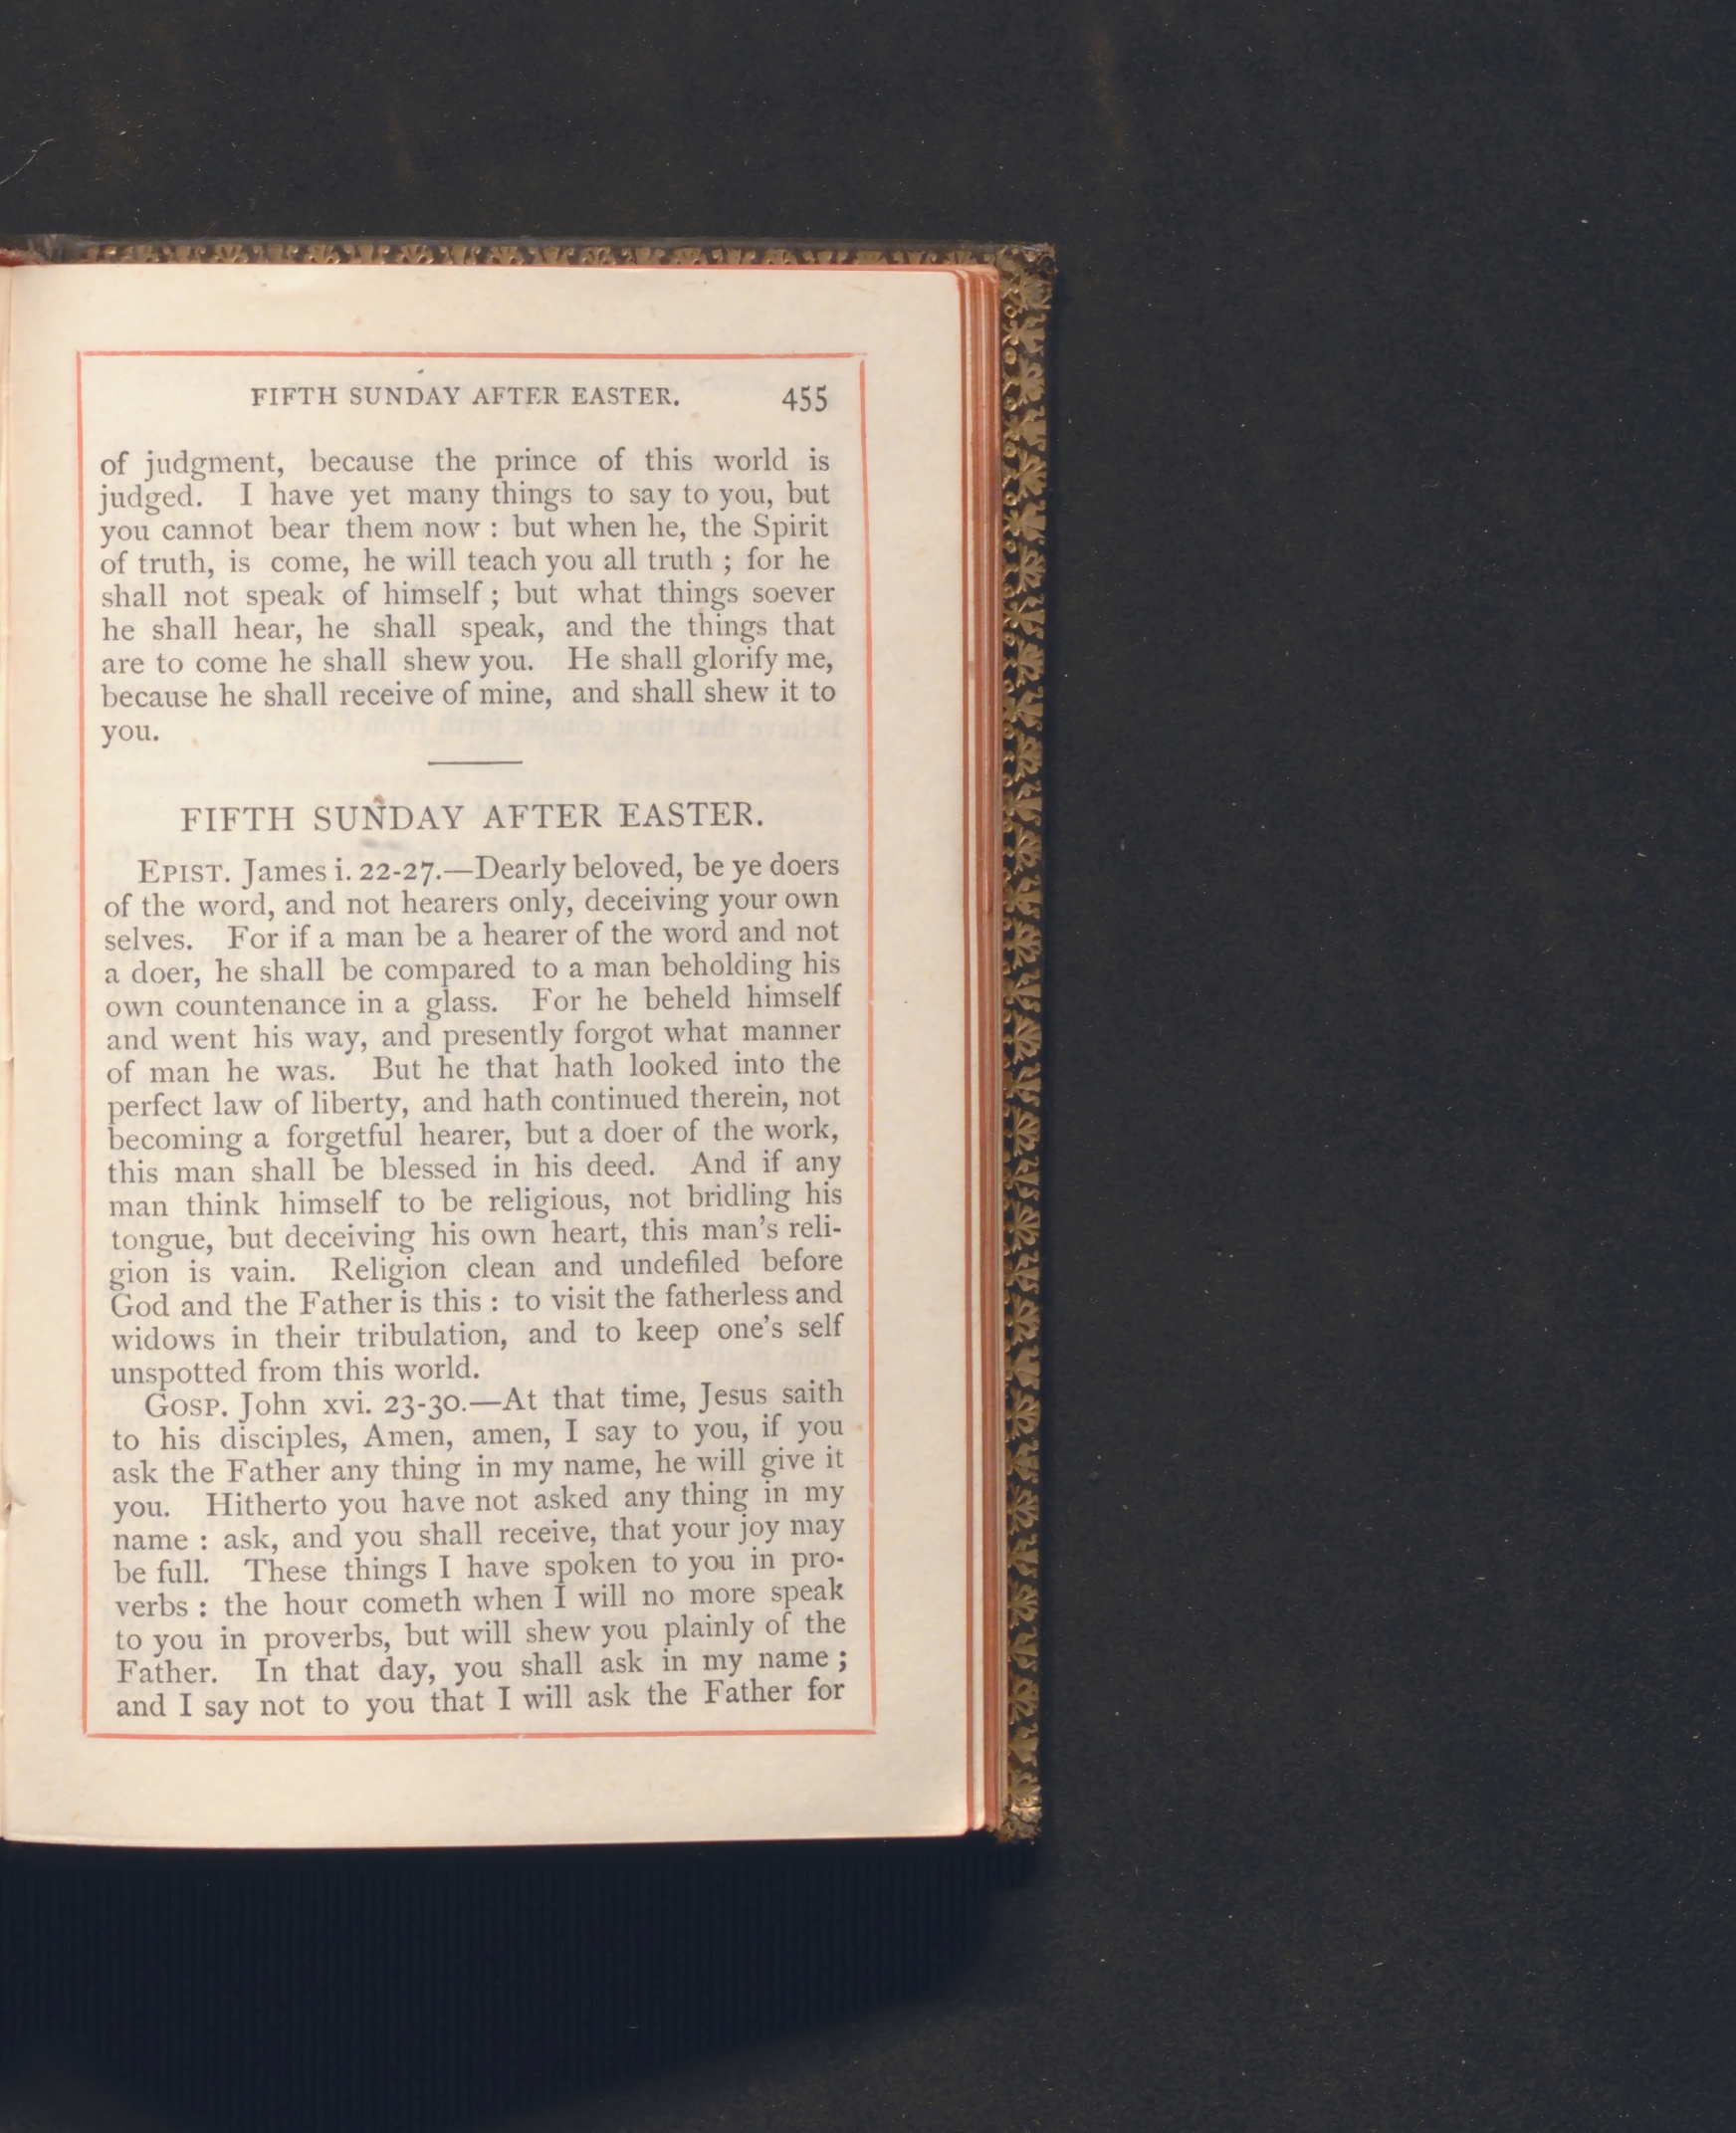 FIFTH SUNDAY AFTER EASTER. 455
of judgment, because the prince of this world is
judged. I have yet many things to say to you, but
you cannot bear them now : but when he, the Spirit
of truth, is come, he will teach you all truth ; for he
shall not speak of himself ; but what things soever
he shall hear, he shall speak, and the things that
are to come he shall shew you. He shall glorify me,
because he shall receive of mine, and shall shew it to
you.
FIFTH SUNDAY AFTER EASTER.
EPIST. James i. 22-27.—Dearly beloved, be ye doers
of the word, and not hearers only, deceiving your own
selves. For if a man be a hearer of the word and not
a doer, he shall be compared to a man beholding his
own countenance in a glass. For he beheld himself
and went his way, and presently forgot what manner
of man he was. But he that hath looked into the
perfect law of liberty, and hath continued therein, not
becoming a forgetful hearer, but a doer of the work,
this man shall be blessed in his deed. And if any
man think himself to be religious, not bridling his
tongue, but deceiving his own heart, this man's reli-
gion is vain. Religion clean and undefiled before
God and the Father is this : to visit the fatherless and
widows in their tribulation, and to keep one's self
unspotted from this world.
GOSP. John xvi. 23-30.—At that time, Jesus saith
to his disciples, Amen, amen, I say to you, if you
ask the Father any thing in my name, he will give it
you. Hitherto you have not asked any thing in my
name : ask, and you shall receive, that your joy may
be full. These things I have spoken to you in pro-
verbs : the hour cometh when I will no more speak
to you in proverbs, but will shew you plainly of the
Father. In that day, you shall ask in my name ;
and I say not to you that I will ask the Father for